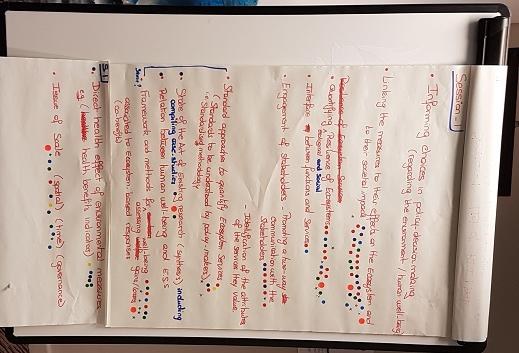 Session
• Informing choices in policy-decision making
(regarding the environment / human well-being)
• Linking the measures to their effects on the Ecosystem and
to their societal impact
• Quantifying Resilience of Ecosystems
and Social
• Interface between function and Services
• Engagement of stakeholders - Promoting a two-way
communication with the
Stakeholders
- Identification of the attributes
of the services they value
• Standard approaches to quantify Ecosystem Services
(Standards to be understood by policy makers)
• State of the Art of Existing research (synthesis) including
compiling case studies
• Relation between human well-being and ESS
• Framework and methods for well-being
assessing
associated to ecosystem based responses
(co-benefit)
Direct health effect of environmental measures
eg ( health benefit indicator)
• Issue of Scale (spatial) (time) (governance)